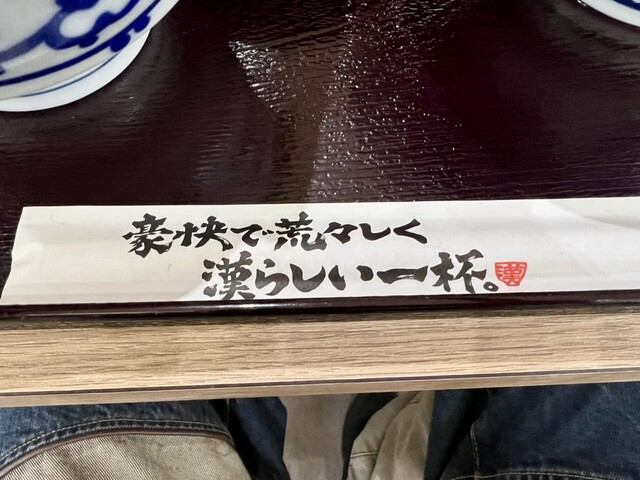 豪快で荒々しく
漢らしい一杯。
漢